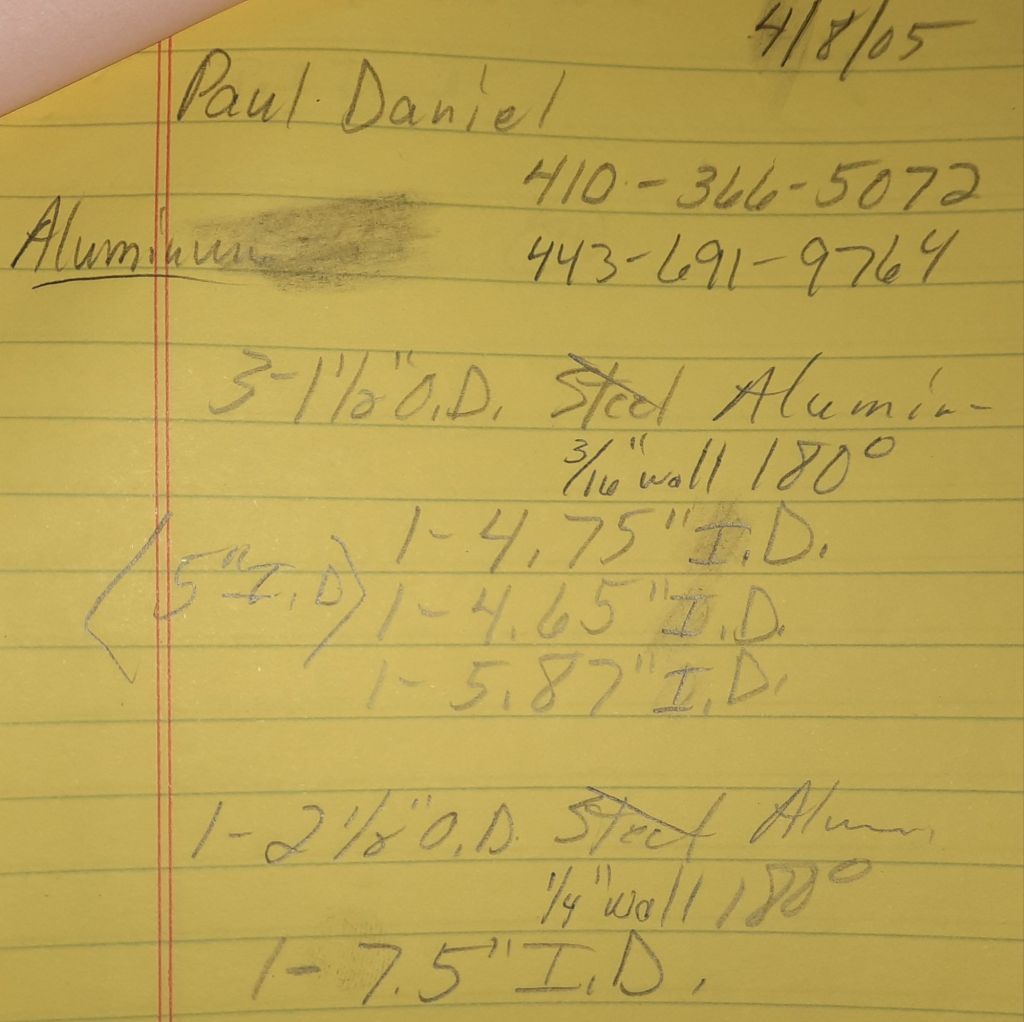 4/8/05
Paul Daniel
410-366-5072
Aluminum
443-691-9764
3-1 1/2" O.D. Steel Alumin-
3/16" wall 180°
1-4.75" I.D.
(5" I.D) 1-4.65" I.D.
1-5.87" I.D.
1-2 1/2" O.D. Steel Alum.
1/4" wall 180°
1-7.5" I.D.